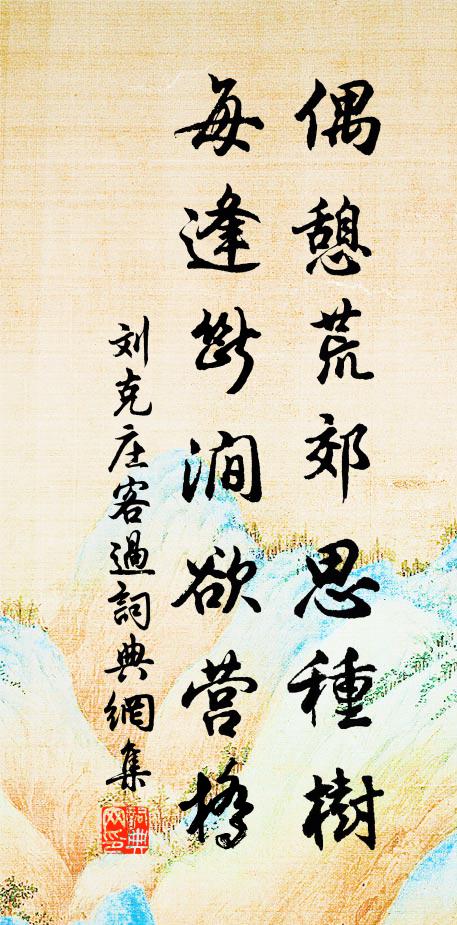 偶憩荒郊思種樹
每逢断澗欲营橋
刘克庄客過詞典網集
詞典網印